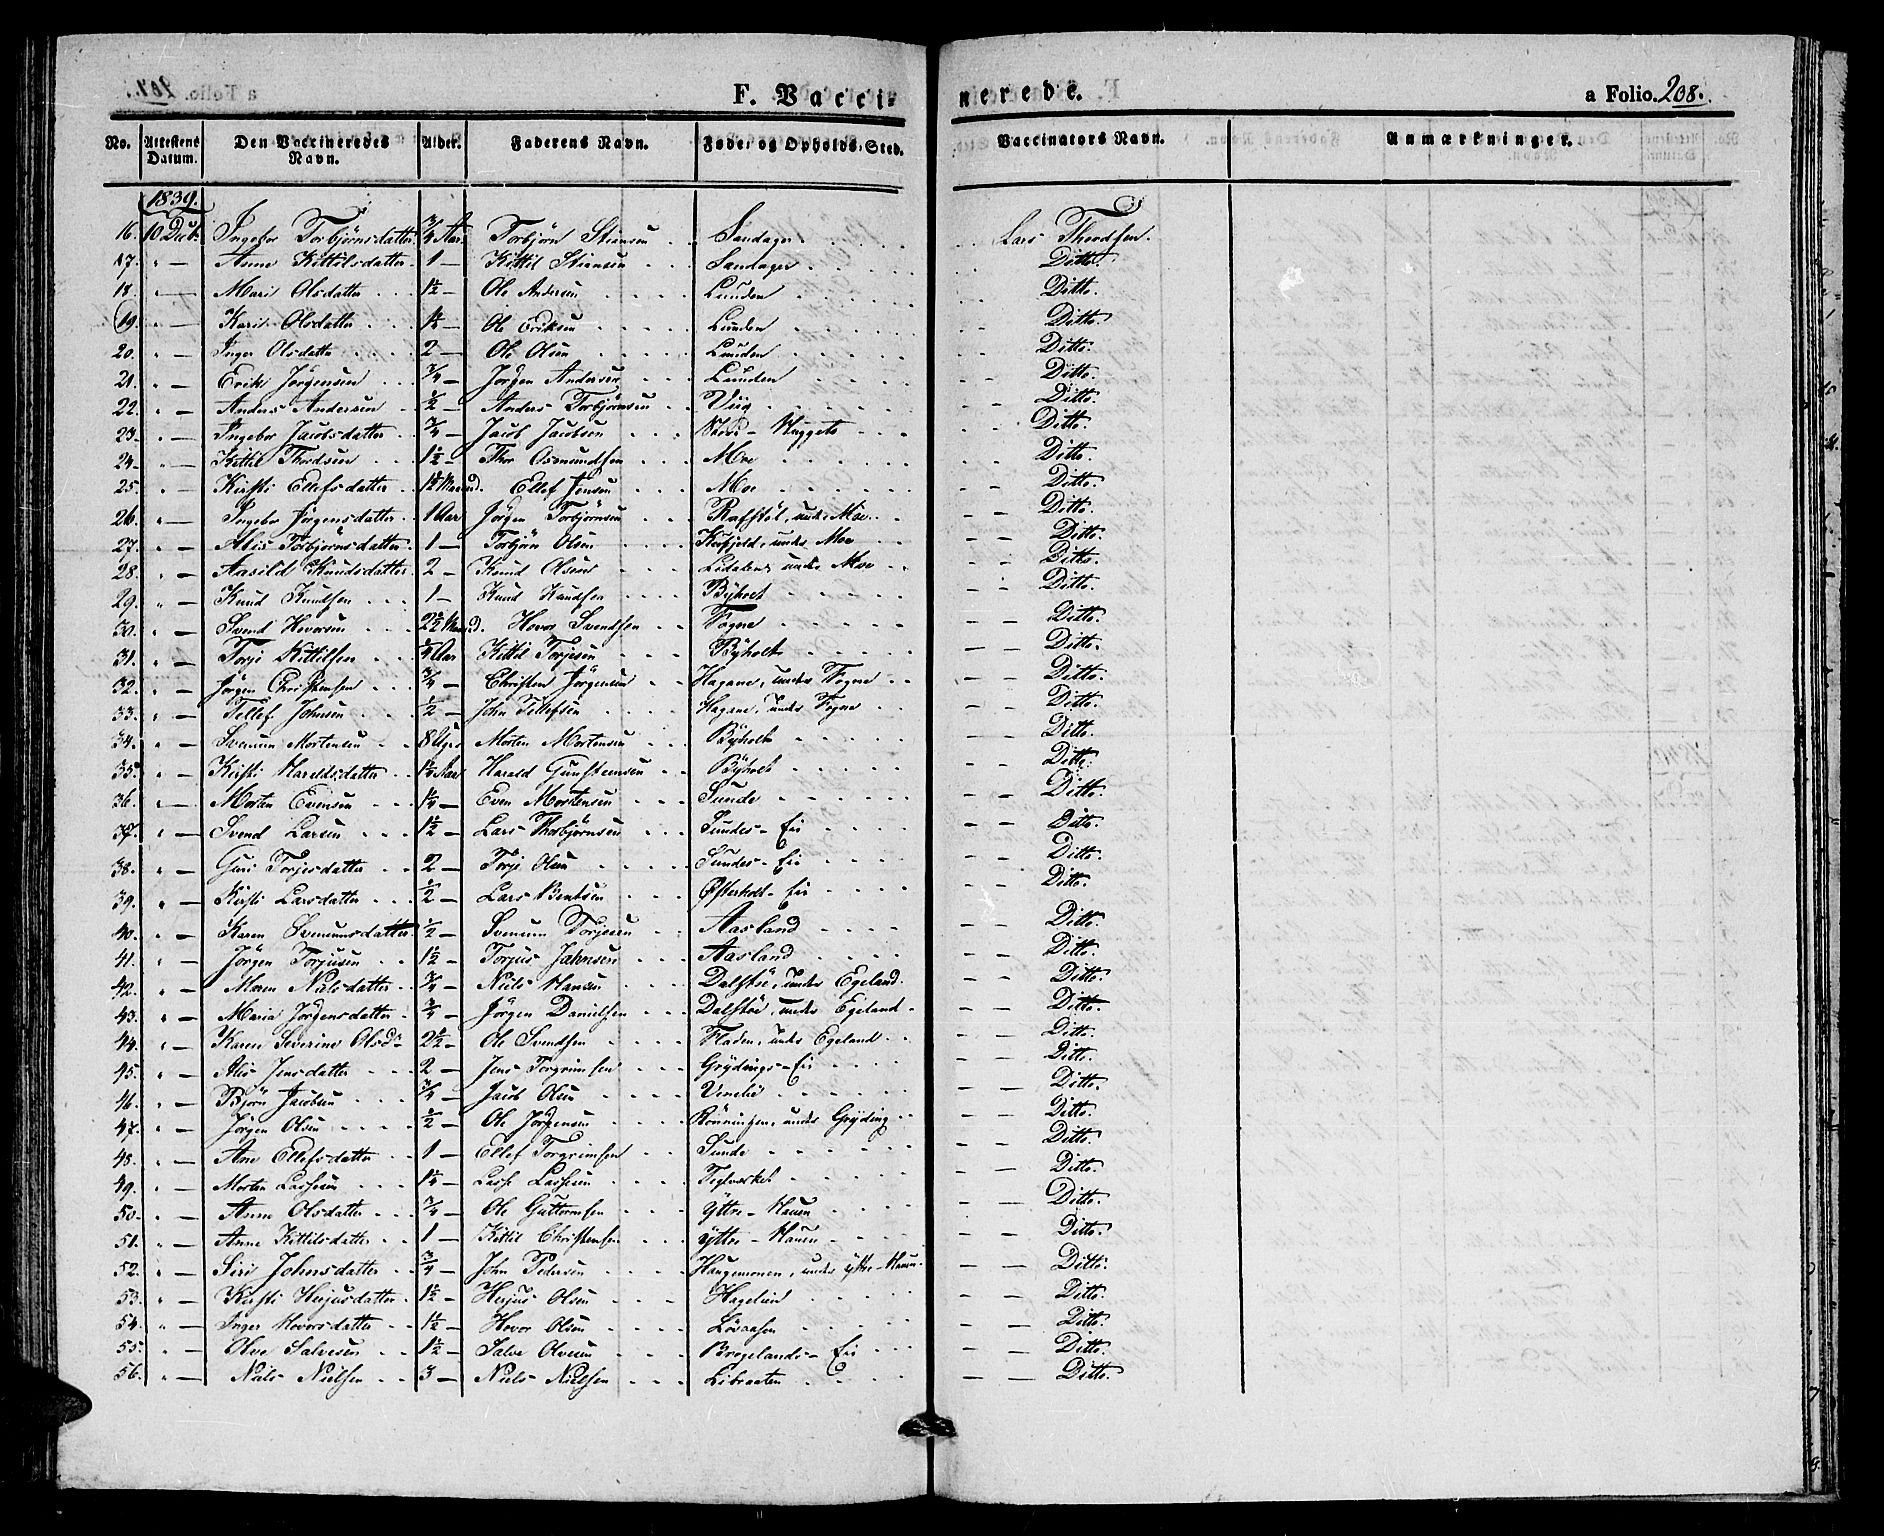 F. Vacci- nerede. a Folio. 208.
No. Attestens Datum. Den Vaccineredes Navn. Alder. Faderens Navn. Føde- og Opholds-Sted. Vaccinators Navn. Anmærkninger.
1839.
16. 10 Dec. Ingebor Torbjörnsdatter 3/4 Aar Torbjörn Stiansen Sandager Lars Thordsen.
17. " — Anne Kittilsdatter 1 — Kittil Stiansen Sandager Ditto.
18. " — Mari Olsdatter 1½ — Ole Andersen Lunden Ditto.
19. " — Kari Olsdatter Ole Eriksen Lunden Ditto.
20. " — Inger Olsdatter 2 — Ole Olsen Lunden Ditto.
21. " — Erik Jörgensen 3/4 — Jörgen Andersen Lunden Ditto.
22. " — Anders Andersen ½ — Anders Torbjörnsen Viig Ditto.
23. " — Ingebor Jacobsdatter 3/4 — Jacob Jacobsen Ditto.
24. " — Kittil Thordsen 1½ — Thor Osmundsen Moe Ditto.
25. " — Kirsti Ellefsdatter Ellef Jensen Moe Ditto.
26. " — Ingebor Jörgensdatter 1 Aar Jörgen Torbjörnsen Rafstöl, under Moe Ditto.
27. " — Alis Torbjörnsdatter 1 — Torbjörn Olsen under Moe Ditto.
28. " — Aasild Knudsdatter 2 — Knud Olsen Lidalen, under Moe Ditto.
29. " — Knud Knudsen 1 — Knud Knudsen Byholt Ditto.
30. " — Svend Hovorsen Hovor Svendsen Fogne Ditto.
31. " — Torje Kittilsen Kittil Torjesen Byholt Ditto.
32. " — Jörgen Christensen 3/4 — Christen Jörgensen Hagane, under Fogne Ditto.
33. " — Tellef Johnsen ½ — John Tellefsen Hagane, under Fogne Ditto.
34. " — Svenum Mortensen 8 Uger Morten Mortensen Byholt Ditto.
35. " — Kirsti Haraldsdatter Harald Gunsteensen Byholt Ditto.
36. " — Morten Evensen 1¼ — Even Mortensen Sunde Ditto.
37. " — Svend Larsen 1½ — Lars Thorbjörnsen Sundes-Eie Ditto.
38. " — Guri Torjesdatter 2 — Torje Olsen Sundes-Eie Ditto.
39. " — Kirsti Larsdatter ½ — Lars Bentsen Østerholt-Eie Ditto.
40. " — Karen Svenumsdatter ½ — Svenum Torjesen Aasland Ditto.
41. " — Jörgen Torjusen 1½ — Torjus Jahnsen Aasland Ditto.
42. " — Maren Nielsdatter 3/4 — Niels Hansen Dalstöe, under Egeland Ditto.
43. " — Maria Jörgensdatter 3/4 — Jörgen Danielsen Dalstöe, under Egeland Ditto.
44. " — Karen Severine Olsdr 2½ — Ole Svendsen Fladen, under Egeland Ditto.
45. " — Alis Jensdatter 2 — Jens Torgrimsen Grydings-Eie Ditto.
46. " — Björn Jacobsen 3/4 — Jacob Olsen Vinelie Ditto.
47. " — Jörgen Olsen ½ — Ole Jörgensen Rönningen, under Gryding Ditto.
48. " — Ane Ellefsdatter 1 — Ellef Torgrimsen Sunde Ditto.
49. " — Morten Lassesen 1¼ — Lasse Lassesen Teglværket Ditto.
50. " — Anne Olsdatter 3/4 — Ole Guttormsen Yttre-Hauen Ditto.
51. " — Anne Kittilsdatter 1 — Kittil Christensen Yttre-Hauen Ditto.
52. " — Siri Johnsdatter 3/4 — John Pedersen Haugemonen, under yttre-Hauen Ditto.
53. " — Kirsti Herjusdatter 1½ — Herjus Olsen Hagelien Ditto.
54. " — Inger Hovorsdatter 1½ — Hovor Olsen Lövaasen Ditto.
55. " — Olve Salvesen 1½ — Salve Olvesen Brogelands-Eie Ditto.
56. " — Niels Nielsen 3 — Niels Nielsen Libraaten Ditto.